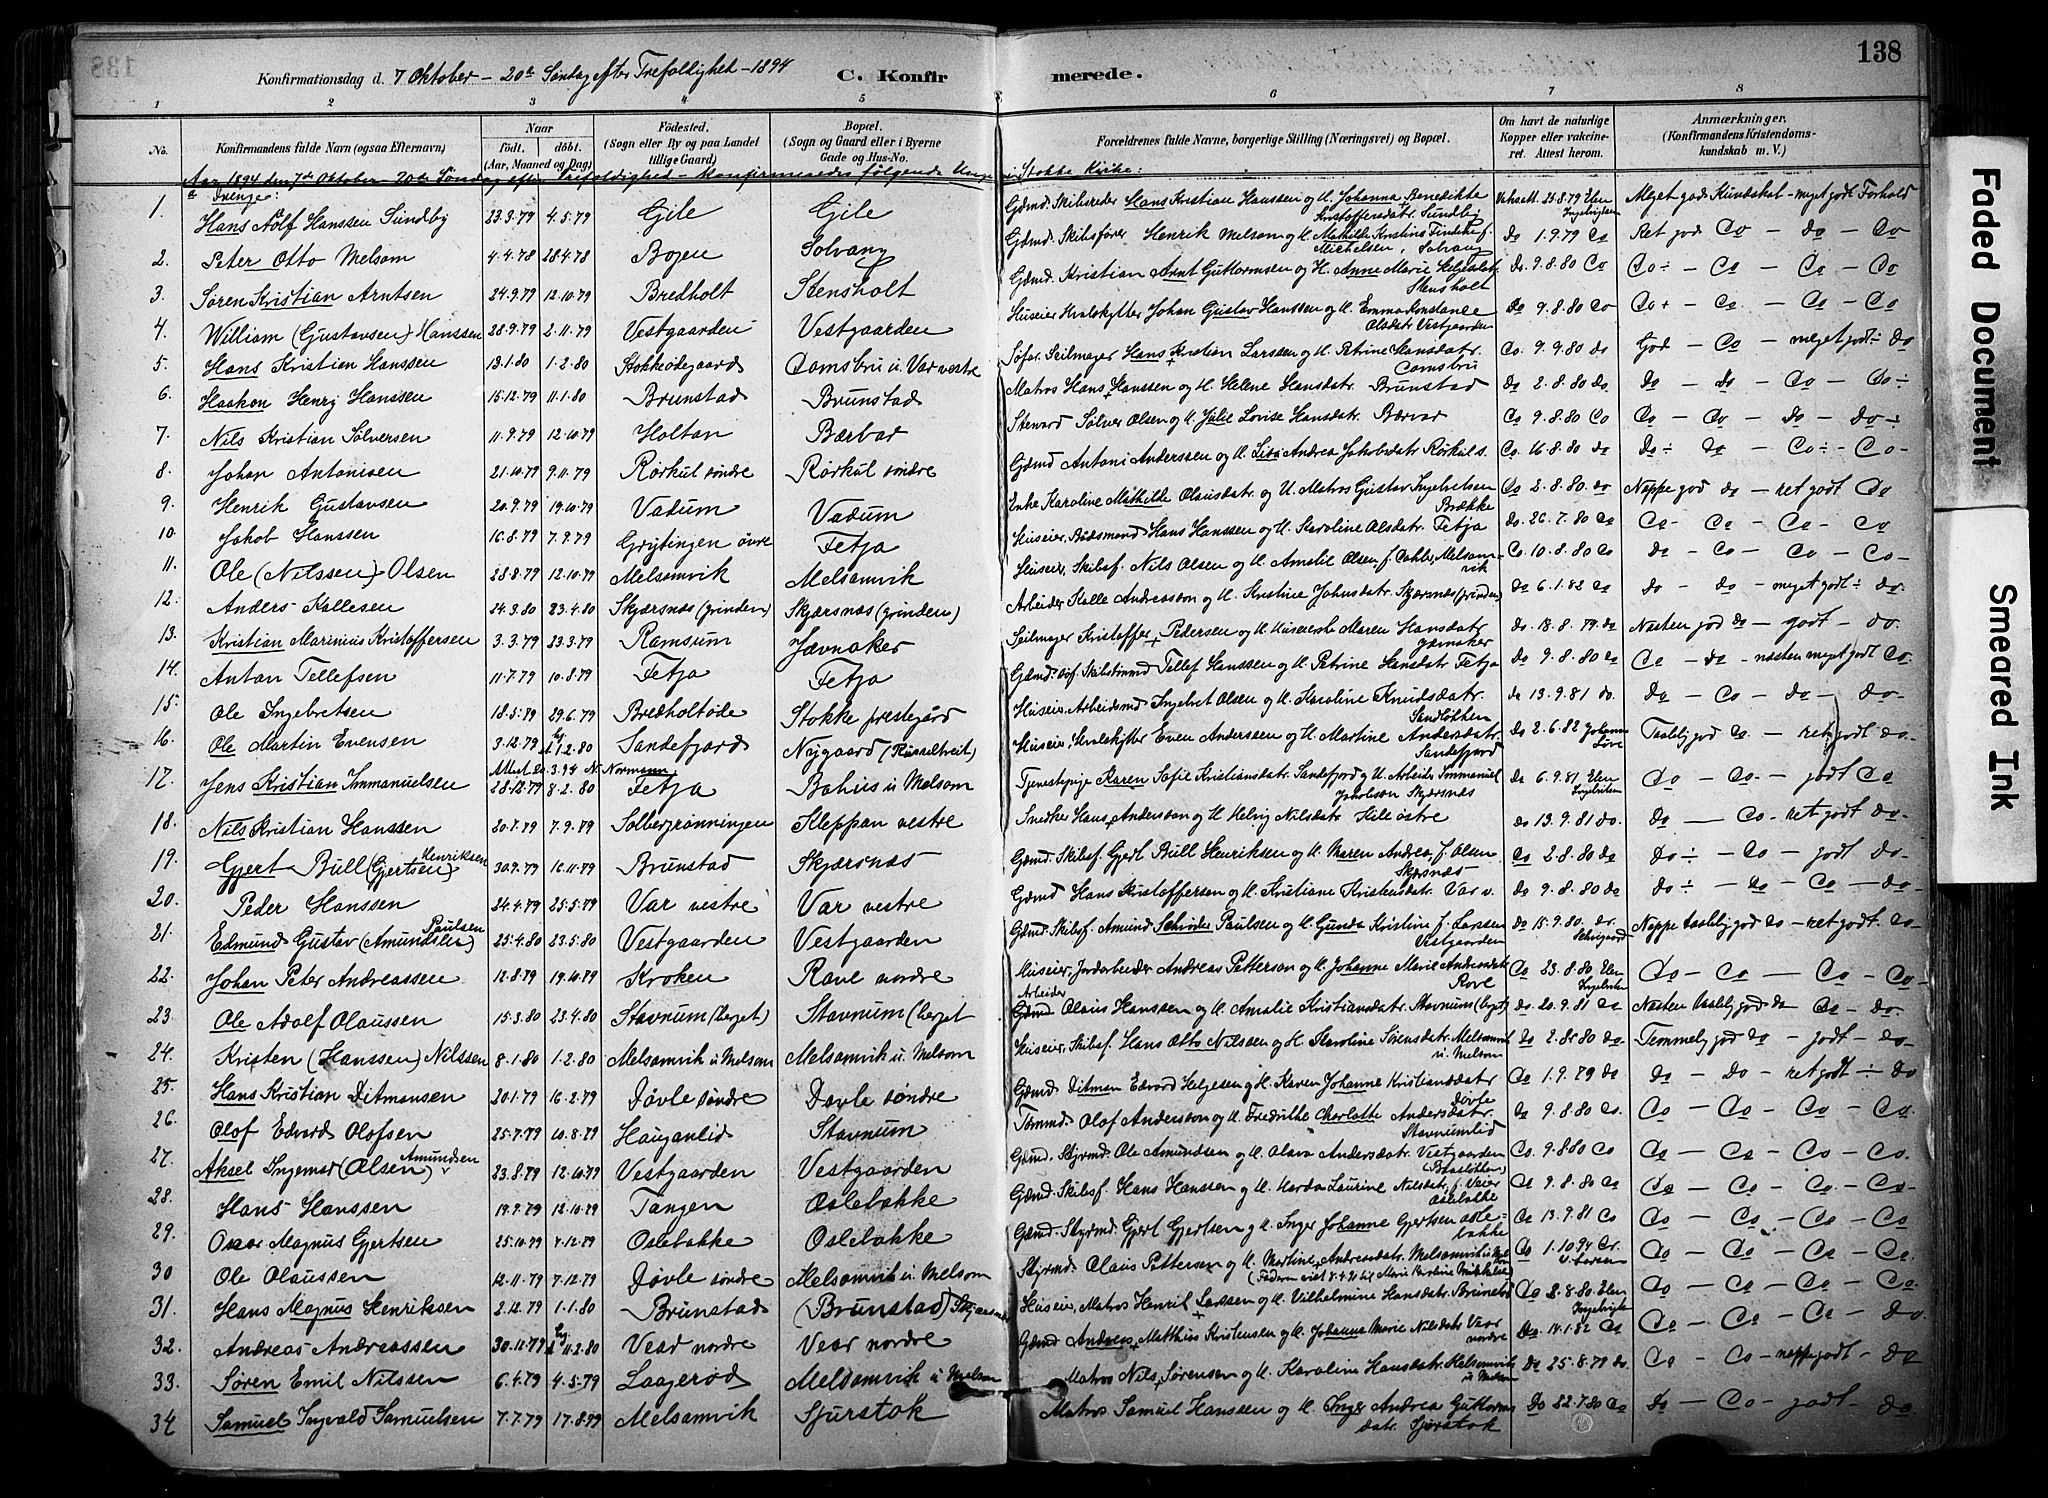 138
Konfirmationsdag d. 7 Oktober - 20de Søndag efter Trefoldighed - 1894
C. Konfirmerede.
1 2 3 4 5 6 7 8
No.
Konfirmandens fulde Navn (ogsaa Efternavn)
Naar
født. døbt.
(Aar, Maaned og Dag)
Fødested.
(Sogn eller By og paa Landet
tillige Gaard)
Bopæl.
(Sogn og Gaard eller i Byerne
Gade og Hus-No.
Forældrenes fulde Navne, borgerlige Stilling (Næringsvei) og Bopæl.
Om havt de naturlige
Kopper eller vakcine-
ret. Attest herom.
Anmærkninger.
(Konfirmandens Kristendoms-
kundskab m. V.)
Aar 1894 den 7de Oktober - 20de Søndag efter Trefoldighed - Konfirmeredes følgende Unge i Stokke Kirke:
Drenge:
1. Hans Adolf Hanssen Sundby 23.3.79 4.5.79 Gile Gile Gdmd. Skibsreder Hans Kristian Hanssen og H. Johanna Benedikte Kristoffersdatr. Sundby 25.8.79 Elen Ingebrigtsen Meget god Kundskab - meget godt Forhold
2. Peter Otto Melsom 4.4.78 28.4.78 Bogen Solvang Gdmd. Skibsfører Henrik Melsom og H. Mathilde Kristine f. Michelsen, Solvang Do 1.9.79 Do Ret god Do - Do - Do
3. Søren Kristian Arntsen 24.9.79 12.10.79 Bredholt Stensholt Gdmd. Kristian Arnt Guttormsen og H. Anne Marie Helgesdatr. Stensholt Do. 9.8.80 Do Do ÷ - Do - Do - Do
4. William (Gustavsen) Hanssen 28.9.79 2.11.79 Vestgaarden Vestgaarden Huseier Hvalskytter Johan Gustav Hanssen og H. Emma Konstance Olsdatr. Vestgaarden Do 9.8.80 Do Do + - Do - Do - Do
5. Hans Kristian Hanssen 13.1.80 1.2.80 Stokkeødegaard Damsbru u. Var vestre Søfar. Seilmager Hans Kristian Larssen og H. Petrine Hansdatr. Damsbru Do. 9.9.80 Do God - Do - meget godt ÷ Do
6. Haakon Henry Hanssen 15.12.79 11.1.80 Brunstad Brunstad Matros Hans Hanssen og H. Helene Hansdatr. Brunstad Do 2.8.80 Do Do - Do - Do - Do ÷
7. Nils Kristian Sølversen 11.9.79 12.10.79 Holtan Bærvar Steward Sølver Olsen og H. Julie Lovise Hansdatr. Bærvar Do 9.8.80 Do Do - Do - Do - Do ÷
8. Johan Antonisen 21.10.79 9.11.79 Rørkul søndre Rørkul søndre Gdmd Antoni Anderssen og H. Lisa Andrea Jakobsdatr. Rørkul s. Do 16.8.80 Do Do ÷ Do - Do ÷ - Do -
9. Henrik Gustavsen 20.9.79 19.10.79 Vadum Vadum Enke Karoline Mathilde Olausdatr. og U. Matros Gustav Ingebretsen Brække Do 2.8.80 Do Nappe god Do - ret godt Do
10. Jakob Hanssen 16.8.79 7.9.79 Grytingen övre Fetja Huseier, Baadsmand Hans Hanssen og H. Karoline Olsdatr. Fetja Do. 26.7.80 Do Do - Do - Do - Do
11. Ole (Nilssen) Olsen 28.8.79 12.10.79 Melsomvik Melsomvik Huseier, Skibsf. Nils Olsen og H. Amalie Olsen, f. Dahler, Melsomvik Do 10.8.80 Do Do - Do - Do - Do -
12. Anders Kallesen 24.3.80 23.4.80 Skjærsnæs (grinden) Skjærsnæs (grinden) Arbeider Kalle Andreassen og H. Kristine Johnsdatr. Skjærsnæs (grinden) Do 6.1.82 Do Do - Do - meget godt ÷ Do.
13. Kristian Marinius Kristoffersen 3.3.79 23.3.79 Ramsum Jævnaker Seilmager Kristoffer Pedersen og H. Maren Hansdatr. Do. 18.8.79 Do Næsten god Do - godt - Do.
14. Anton Tellefsen 11.7.79 10.8.79 Fetja Fetja Tellef Hanssen og H. Petrine Hansdatr. Fetja Do 9.8.80 Do Do - Do - næsten meget godt Do.
15. Ole Ingebretsen 18.5.79 29.6.79 Bredholtøde Stokke prestegård Huseier, Arbeidsmd Ingebret Olsen og H. Karoline Knudsdatr. Sandløkken Do 13.9.81 Do. Do - Do - Do - Do -
16. Ole Martin Evensen 3.12.79 1.2.80 Sandefjord Nygaard Huseier, Hvalskytter Even Anderssen og H. Martine Andersdatr. Sandefjord Do 2.6.82 Taalelig god Do. - ret godt Do -
17. Jens Kristian Immanuelsen 28.12.79 8.2.80 Fetja Bahus u Melsom Tjenestepige Karen Sofie Kristiansdatr. Sandefjord og U. Arbeider Immanuel Jakobsen Skjærsnæs Do 6.9.81 Elen Ingebrigtsen Do - Do - godt Do
18. Nils Kristian Hanssen 20.7.79 7.9.79 Solbergrønningen Kleppan vestre Snedker Hans Anderssen og H Helvig Nilsdatr. Hile østre Do 13.9.81 Do. Do - Do - ret godt Do.
19. Gjert Bull (Gjertsen) Henriksen 30.9.79 16.11.79 Brunstad Skjærsnæs Gdmd. Skibsf. Gjert Bull Henriksen og H. Maren Andrea, f. Olsen Skjærsnæs Do 2.8.80 Do Do ÷ - Do - godt Do -
20. Peder Hanssen 24.4.79 25.5.79 Var vestre Var vestre Gdmd Hans Kristoffersen og H. Kristiane Kristensdatr. Var v. Do 9.8.80 Do Do ÷ - Do - Do - Do -
21. Edmund Gustav (Amundsen) Paulsen 25.4.80 23.5.80 Vestgaarden Vestgaarden Gdmd. Skibsf. Amund Schrøder Paulsen og H. Gunda Kristine f. Larssen Vestgaarden Do 15.9.80 Nappe taalelig god Do - ret godt. Do -
22. Johan Peter Andreassen 12.8.79 19.10.79 Kroken Rave nordre Huseier, Jordarbeider Andreas Pettersen og H. Johanne Marie Andreasdatr Rove Do 23.8.80 Elen Ingebrigtsen Do - Do - Do - Do -
23. Ole Adolf Olaussen 15.3.80 23.4.80 Stavnum (berget) Stavnum (berget Arbeider Olaus Hanssen og H. Amalie Kristiansdatr. Stavnum (berget) Do. 20.9.81 Do Næsten taalelig god Do Do - Do.
24. Kristen (Hanssen) Nilssen 8.1.80 1.2.80 Melsomvik u Melsom Melsomvik u. Melsom Huseier, Skibsf. Hans Otto Nilssen og H. Karoline Sørensdatr. Melsomvik u. Melsom Do 2.8.80 Do Temmelig god Do - godt - Do -
25. Hans Kristian Ditmansen 20.1.79 16.2.79 Døvle søndre Døvle søndre Gdmd. Ditman Edvard Helgesen og H. Karen Johanne Kristiansdatr Døvle Do 1.9.79 Do Do - Do - ret godt ÷ Do
26. Olof Edvard Olofsen 25.7.79 10.8.79 Hauganlid Stavnum Tømmd. Olof Anderssen og H. Fredrikke Charlotte Andersdatr. Stavnumlid Do 9.8.80 Do. Do - Do - Do - Do
27. Aksel Ingemar (Olsen) Amundsen 23.8.79 12.10.79 Vestgaarden Vestgaarden Gdmd. Styrmd. Ole Amundsen og H. Olava Andersdatr. Vestgaarden Do. 9.8.80 Do Do - Do - Do - Do.
28. Hans Hanssen 19.9.79 12.10.79 Tangen Oslebakke Gdmd. Skibsf. Hans Hanssen og H. Laurine Nilsdatr. Oslebakke Do 9.8.80 Do Do - Do - Do - Do
29. Oscar Magnus Gjertsen 25.10.79 7.12.79 Oslebakke Oslebakke Gdmd. Styrmd. Gjert Gjertsen og H. Inger Johanne Gjertsen Oslebakke Do 13.9.81 Do Do - Do - Do - Do
30 Ole Olaussen 12.11.79 7.12.79 Døvle søndre Melsomvik u. Melsom Styrmd. Olaus Pettersen og H. Martine Andreasdatr. Melsomvik Do 1.10.94 Do - Do - Do - Do
31. Hans Magnus Henriksen 2.12.79 1.1.80 Brunstad (Brunstad) Huseier, Matros Henrik Larssen og H. Vilhelmine Hansdatr. Brunstad Do 2.8.80 Elen Ingebrigtsen Do - Do - Do - Do
32. Andreas Andreassen 30.11.79 11.2.80 Vear nordre Vear nordre Gdmd Andreas Matthias Kristensen og H. Johanne Marie Nilsdatr. Vear nordre Do. 14.1.82 Do Do - Do - Do - Do
33. Søren Emil Nilssen 6.4.79 4.5.79 Laagerød Melsomvik u Melsom Matros Nils Sørensen og H. Karoline Hansdatr. Melsomvik u. Melsom Do 25.8.79 Do. Do - Do - nappe godt - Do
34 Samuel Ingvald Samuelsen 7.7.79 17.8.79 Melsomvik Sjurstok Matros Samuel Hanssen og H. Inger Andrea Guttormsdatr. Sjurstok Do 22.7.80 Do Do - Do - godt - Do
Faded Document
Smeared Ink